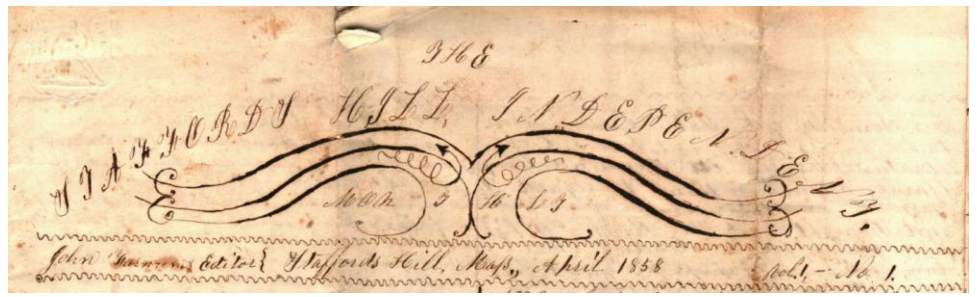 THE
STAFFORDS HILL, INDEPENDENT.
MON T H LY
John Editor} Staffords Hill, Mass., April 1858 Vol. 1, – No. 1.